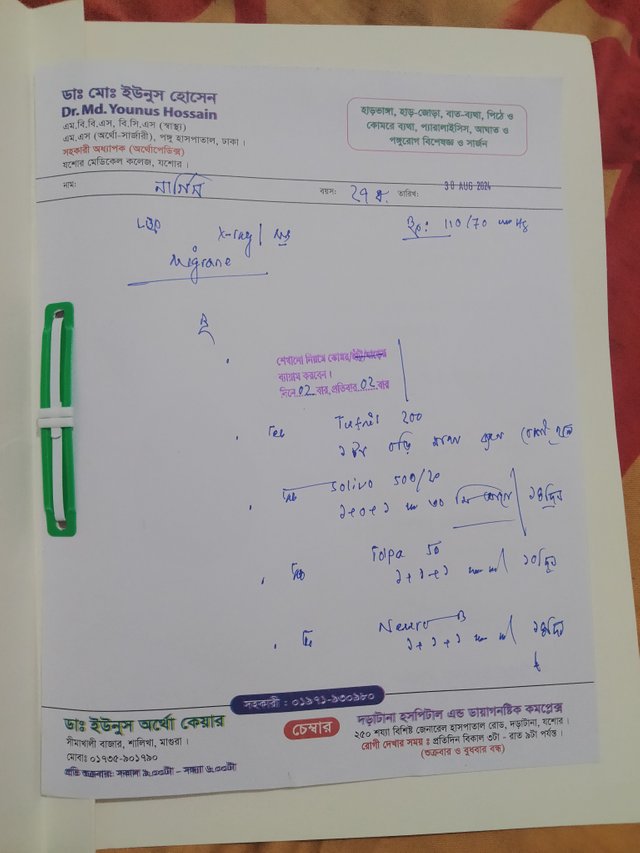 ডাঃ মোঃ ইউনুস হোসেন
Dr. Md. Younus Hossain
এম.বি.বি.এস, বি.সি.এস (স্বাস্থ্য)
এম.এস (অর্থো-সার্জারী), পঙ্গু হাসপাতাল, ঢাকা।
সহকারী অধ্যাপক (অর্থোপেডিক্স)
যশোর মেডিকেল কলেজ, যশোর।
হাড়ভাঙ্গা, হাড়-জোড়া, বাত-ব্যথা, পিঠে ও
কোমরে ব্যথা, প্যারালাইসিস, আঘাত ও
পঙ্গুরোগ বিশেষজ্ঞ ও সার্জন
নাম: নার্গিস বয়স: ২৭ তারিখ: 30 AUG 2024
LBP X-ray Bp: 110/70 mmHg
Migrane
শেখানো নিয়মে কোমর
ব্যায়াম করবেন।
দিনে 02 বার, প্রতিবার 02 বার
Tufnil 200
১টা বড়ি
Solivo 500/20
১+০+১ ৩০ মি আগে ১৪দিন
Tolpa 50
১+১+১ ১০দিন
Neuro B
১+১+১ ১৪দিন
সহকারী : ০১৯৭১-৯৩০৯৮০
ডাঃ ইউনুস অর্থো কেয়ার
সীমাখালী বাজার, শালিখা, মাগুরা।
মোবাঃ ০১৭৩৫-৯০১৭৯০
প্রতি শুক্রবার: সকাল ৯:০০টা - সন্ধ্যা ৬:০০টা
চেম্বার
দড়াটানা হসপিটাল এন্ড ডায়াগনষ্টিক কমপ্লেক্স
২৫০ শয্যা বিশিষ্ট জেনারেল হাসপাতাল রোড, দড়াটানা, যশোর।
রোগী দেখার সময় : প্রতিদিন বিকাল ৩টা - রাত ৯টা পর্যন্ত।
(শুক্রবার ও বুধবার বন্ধ)